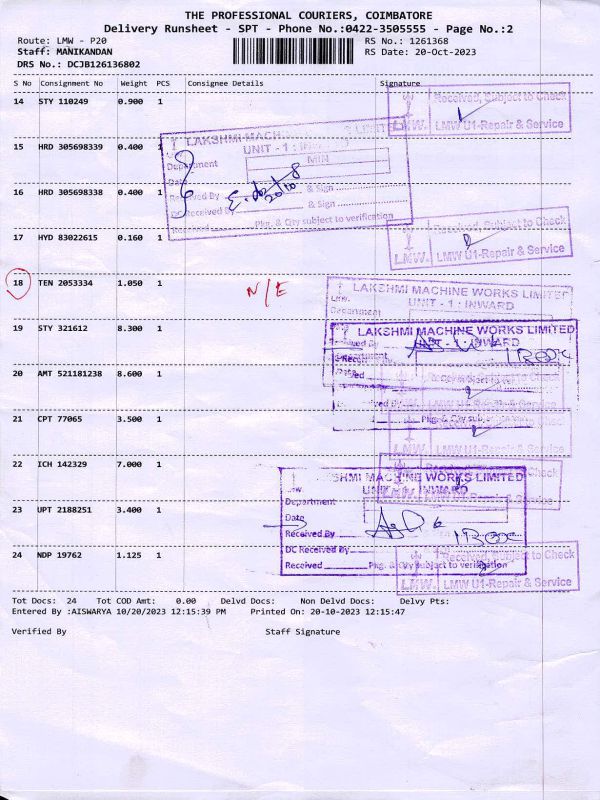 THE PROFESSIONAL COURIERS, COIMBATORE
Delivery Runsheet - SPT - Phone No.:0422-3505555 - Page No.:2
Route: LMW - P20
RS No.: 1261368
Staff: MANIKANDAN
RS Date: 20-Oct-2023
DRS No.: DCJB126136802
S No Consignment No Weight PCS Consignee Details Signature
14 STY 110249 0.900 1
Received, Subject to Check
LMW. LMW U1-Repair & Service
15 HRD 305698339 0.400 1
LAKSHMI MACHINE WORKS LIMITED
UNIT - 1 : INWARD
Department MIN
Date
16 HRD 305698338 0.400 1
Received By & Sign
20/10
DC Received By & Sign
Received Pkg. & Qty subject to verification
17 HYD 83022615 0.160 1
Received, Subject to Check
LMW. LMW U1-Repair & Service
18 TEN 2053334 1.050 1 N/E
LAKSHMI MACHINE WORKS LIMITED
UNIT - 1 : INWARD
Department
19 STY 321612 8.300 1
LAKSHMI MACHINE WORKS LIMITED
UNIT - 1 : INWARD
20 AMT 521181238 8.600 1
21 CPT 77065 3.500 1
22 ICH 142329 7.000 1
LAKSHMI MACHINE WORKS LIMITED
UNIT - 1 : INWARD
Department
23 UPT 2188251 3.400 1
Date
Received By
24 NDP 19762 1.125 1
DC Received By
Received Pkg. & Qty subject to verification
Received, Subject to Check
LMW. LMW U1-Repair & Service
Tot Docs: 24 Tot COD Amt: 0.00 Delvd Docs: Non Delvd Docs: Delvy Pts:
Entered By :AISWARYA 10/20/2023 12:15:39 PM Printed On: 20-10-2023 12:15:47
Verified By Staff Signature